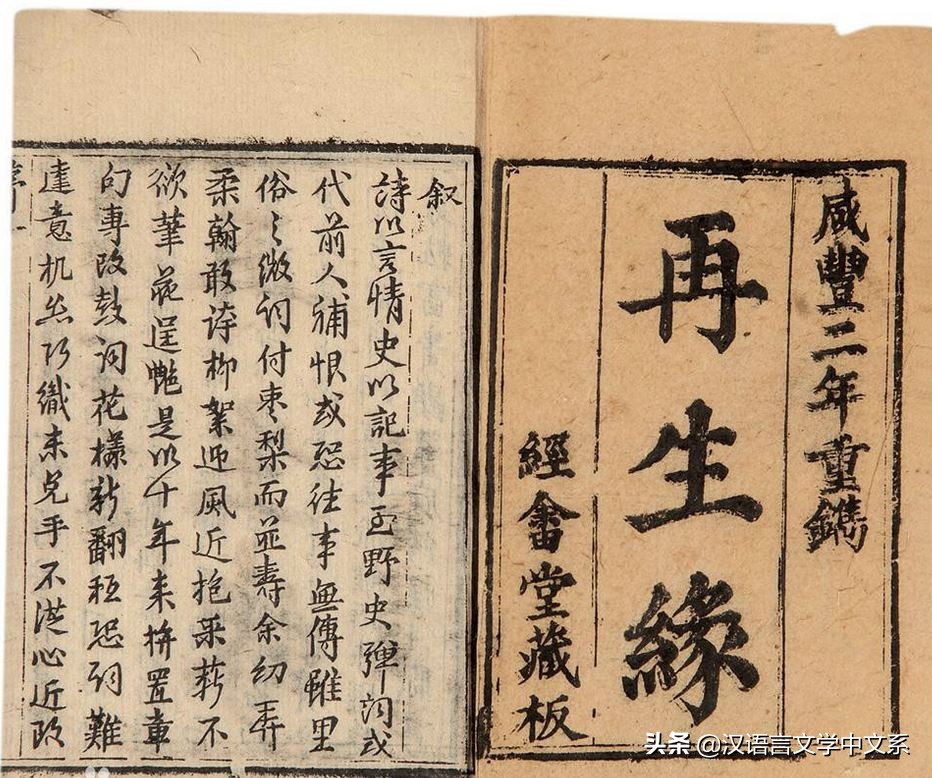 咸豐二年重鐫
再生緣
經畬堂藏板
叙
詩以言情史以記事至野史彈詞或
代前人補恨或恐往事無傳雖里
俗之微詞付棗梨而並壽余幼弄
柔翰敢誇柳絮迎風近抱采薪不
欲筆花逞艷是以十年來拚置章
句專改鼓詞花樣新翻秪恐詞難
達意机絲巧織未免手不從心近改
头条 @汉语言文学中文系